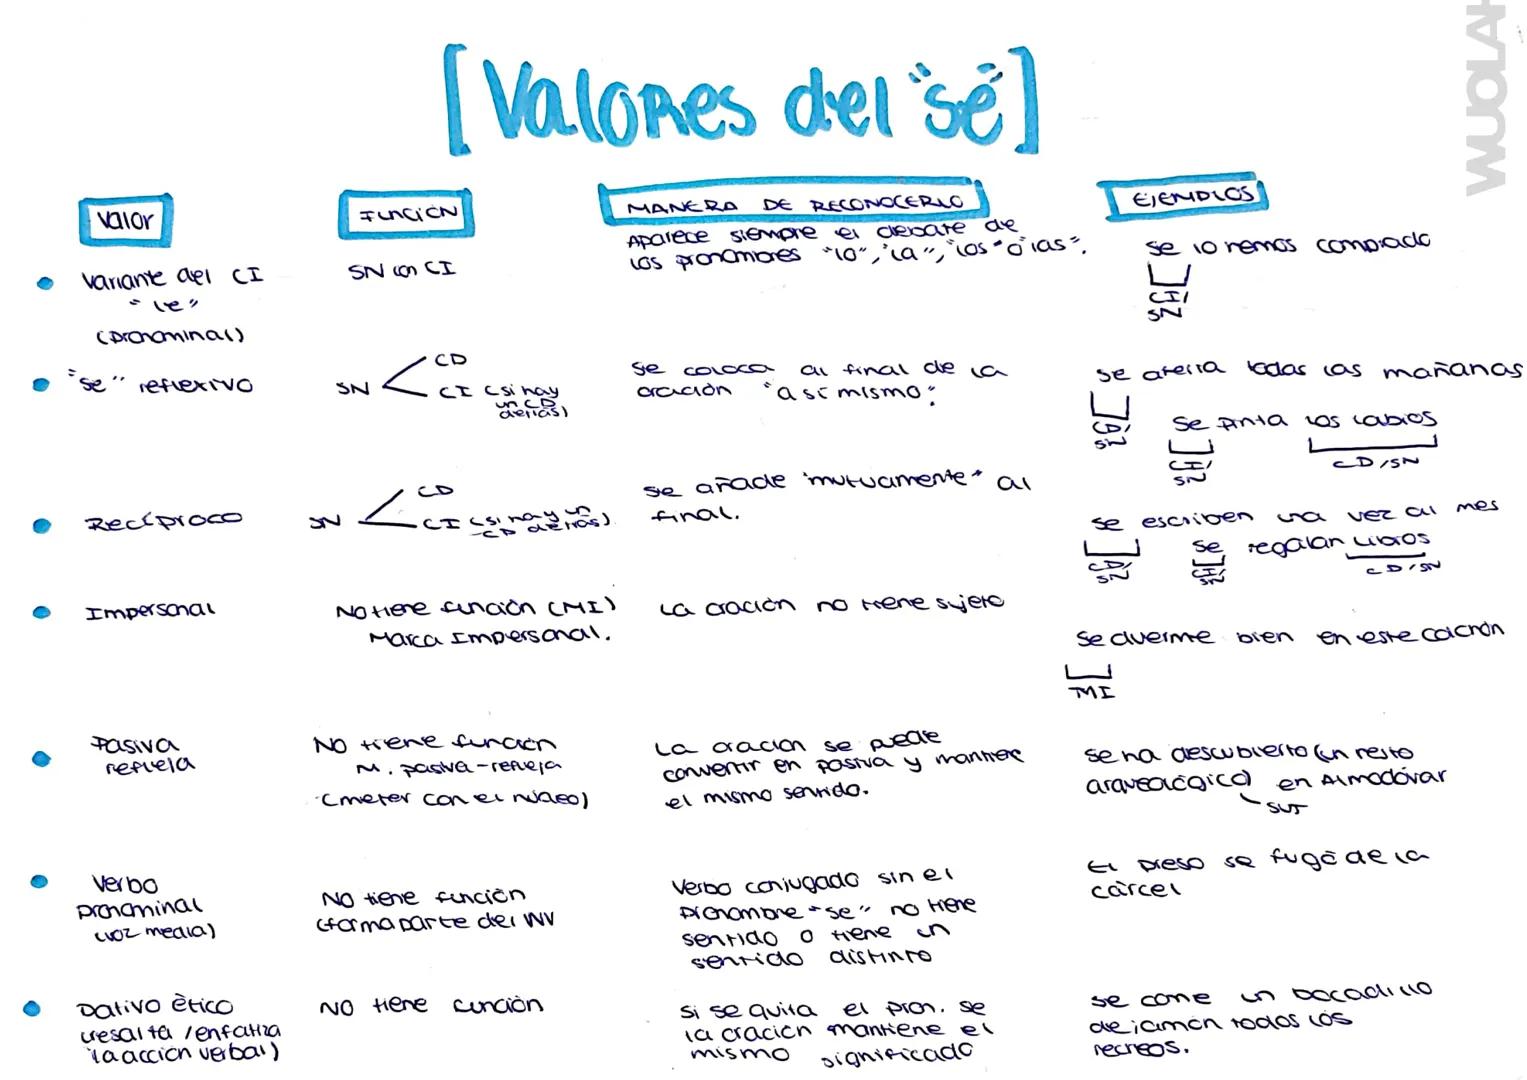 WUOLAH
[Valores del "se"]
Valor
FUNCIÓN
MANERA DE RECONOCERLO
EJEMPLOS
Variante del CI
"le"
(pronominal)
SN con CI
Aparece siempre el delante de
los pronombres "lo", "la", "los" o "las".
Se lo hemos comprado
CI/
SN
"Se" reflexivo
SN
CD
CI (si hay
un CD
detrás)
Se coloca al final de la
oración "a sí mismo".
Se afeita todas las mañanas
CD/
SN
Se pinta los labios
CI/
SN
CD/SN
Recíproco
SN
CD
CI (si hay un
CD detrás)
Se añade "mutuamente" al
final.
Se escriben una vez al mes
CD/
SN
Se regalan libros
CI/
SN
CD/SN
Impersonal
No tiene función (MI)
Marca Impersonal.
La oración no tiene sujeto
Se duerme bien en este colchón
MI
Pasiva
refleja
No tiene función
M. pasiva-refleja
(meter con el núcleo)
La oración se puede
convertir en pasiva y mantiene
el mismo sentido.
Se ha descubierto (un resto
arqueológico) en Almodóvar
SUJ
Verbo
pronominal
(voz media)
No tiene función
(forma parte del NV
Verbo conjugado sin el
pronombre "se" no tiene
sentido o tiene un
sentido distinto
El preso se fugó de la
cárcel
Dativo ético
(resalta /enfatiza
la acción verbal)
No tiene función
Si se quita el pron. se
la oración mantiene el
mismo significado
Se come un bocadillo
de jamón todos los
recreos.